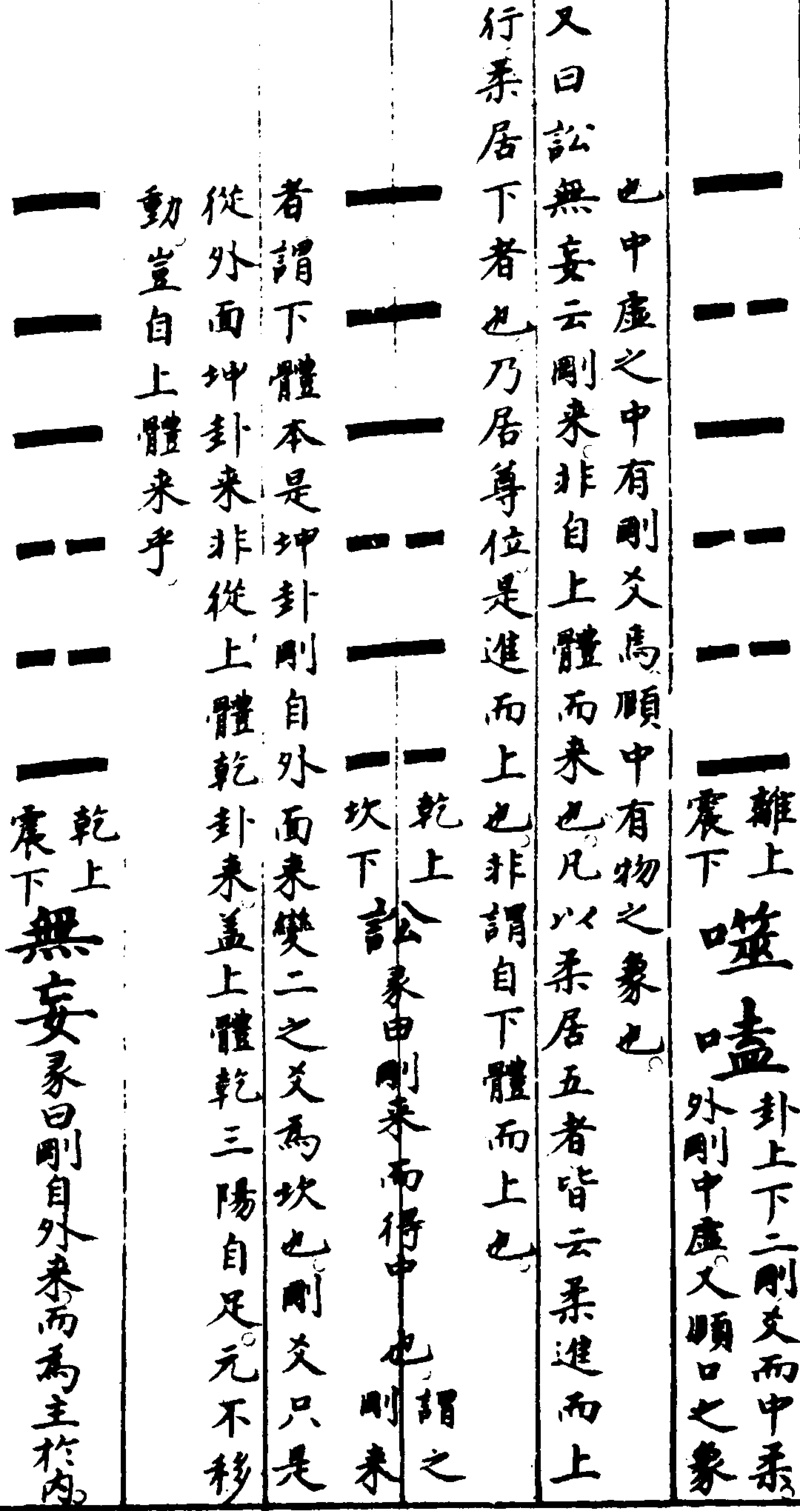 離上
震下
噬嗑
卦上下二剛爻而中柔
外剛中虛又頤口之象
也中虛之中有剛爻焉頤中有物之象也
又曰訟無妄云剛来非自上體而来也凡以柔居五者皆云柔進而上
行柔居下者也乃居尊位是進而上也非謂自下體而上也
乾上
坎下
訟
彖曰剛来而得中也
謂之
剛来
者謂下體本是坤卦剛自外面来變二之爻為坎也剛爻只是
從外面坤卦来非從上體乾卦来盖上體乾三陽自足元不移
動豈自上體来乎
乾上
震下
無妄
彖曰剛自外来而為主於內